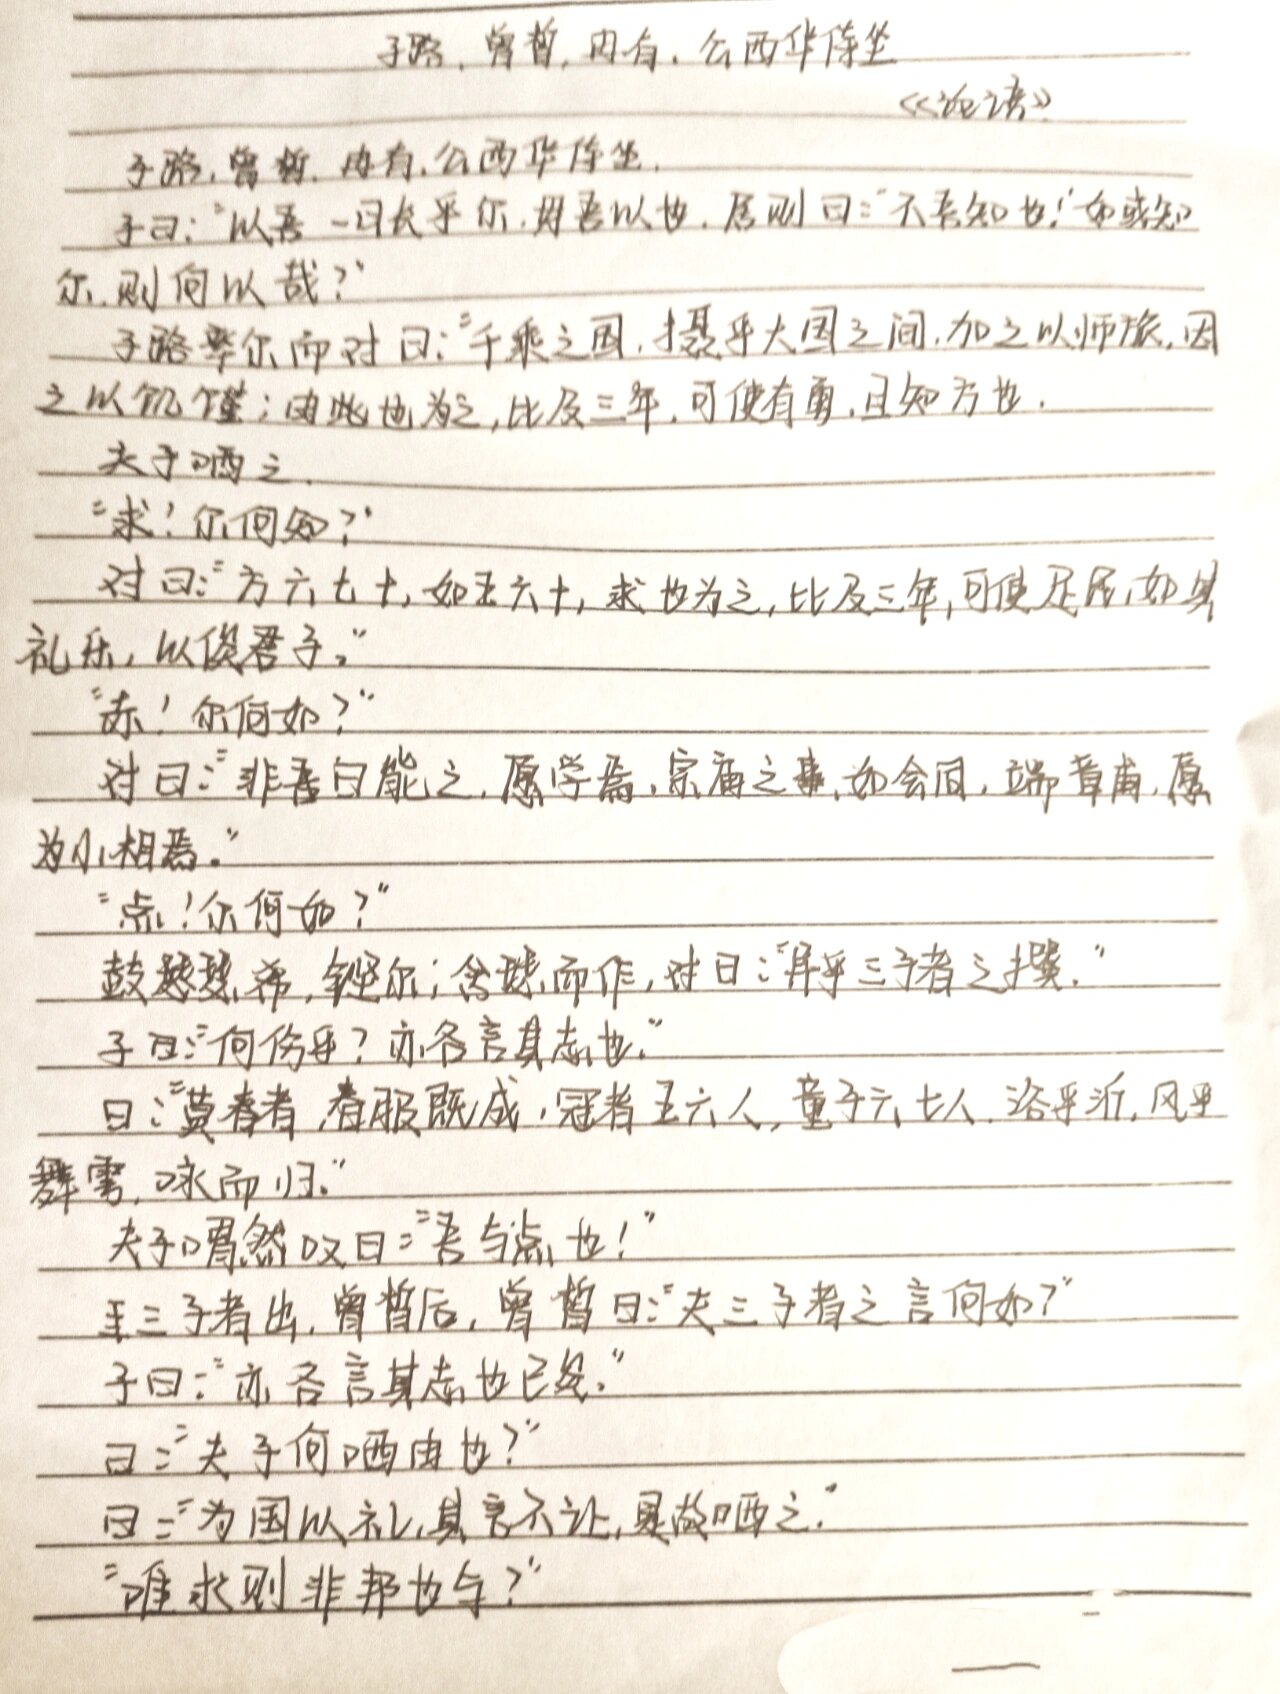 子路、曾皙、冉有、公西华侍坐
《论语》
子路、曾皙、冉有、公西华侍坐.
子曰:“以吾一日长乎尔,毋吾以也.居则曰:“不吾知也!”如或知
尔,则何以哉?”
子路率尔而对曰:“千乘之国,摄乎大国之间,加之以师旅,因
之以饥馑;由此也为之,比及三年,可使有勇,且知方也.
夫子哂之.
“求!尔何如?”
对曰:“方六七十,如五六十,求也为之,比及三年,可使足民,如其
礼乐,以俟君子。”
“赤!尔何如?”
对曰:“非吾曰能之,愿学焉,宗庙之事,如会同,端章甫,愿
为小相焉.”
“点!尔何如?”
鼓瑟希,铿尔;舍瑟而作,对曰:“异乎三子者之撰.”
子曰:“何伤乎?亦各言其志也.”
曰:“莫春者,春服既成,冠者五六人,童子六七人.浴乎沂,风乎
舞雩,咏而归.”
夫子喟然叹曰:“吾与点也!”
三子者出,曾皙后,曾皙曰:“夫三子者之言何如?”
子曰:“亦各言其志也已矣.”
曰:“夫子何哂由也?”
曰:“为国以礼,其言不让,是故哂之.”
“唯求则非邦也与?”